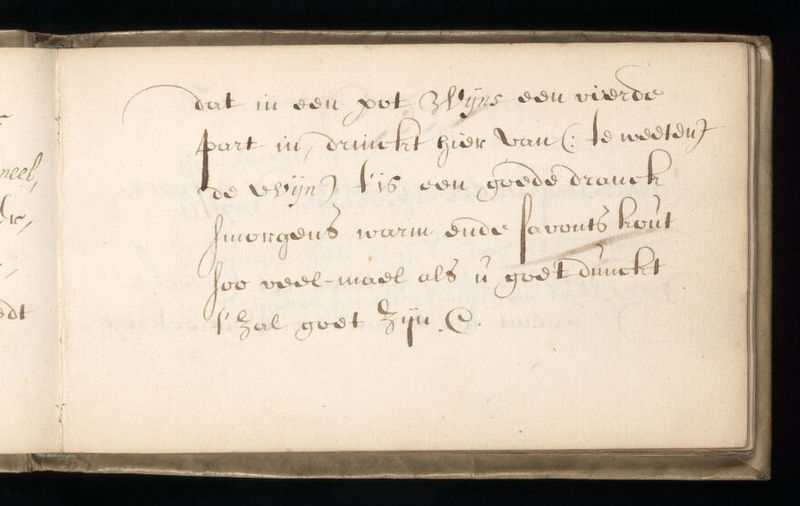 dat in een pot Wijns een vierde
part in, drinckt hier van (: te weeten)
de Wijn) t'is een goede dranck
smorgens warm ende savonts kout
soo veel-mael als ú goet dunckt
t'zal goet zijn.
neel,
r,
,
edt